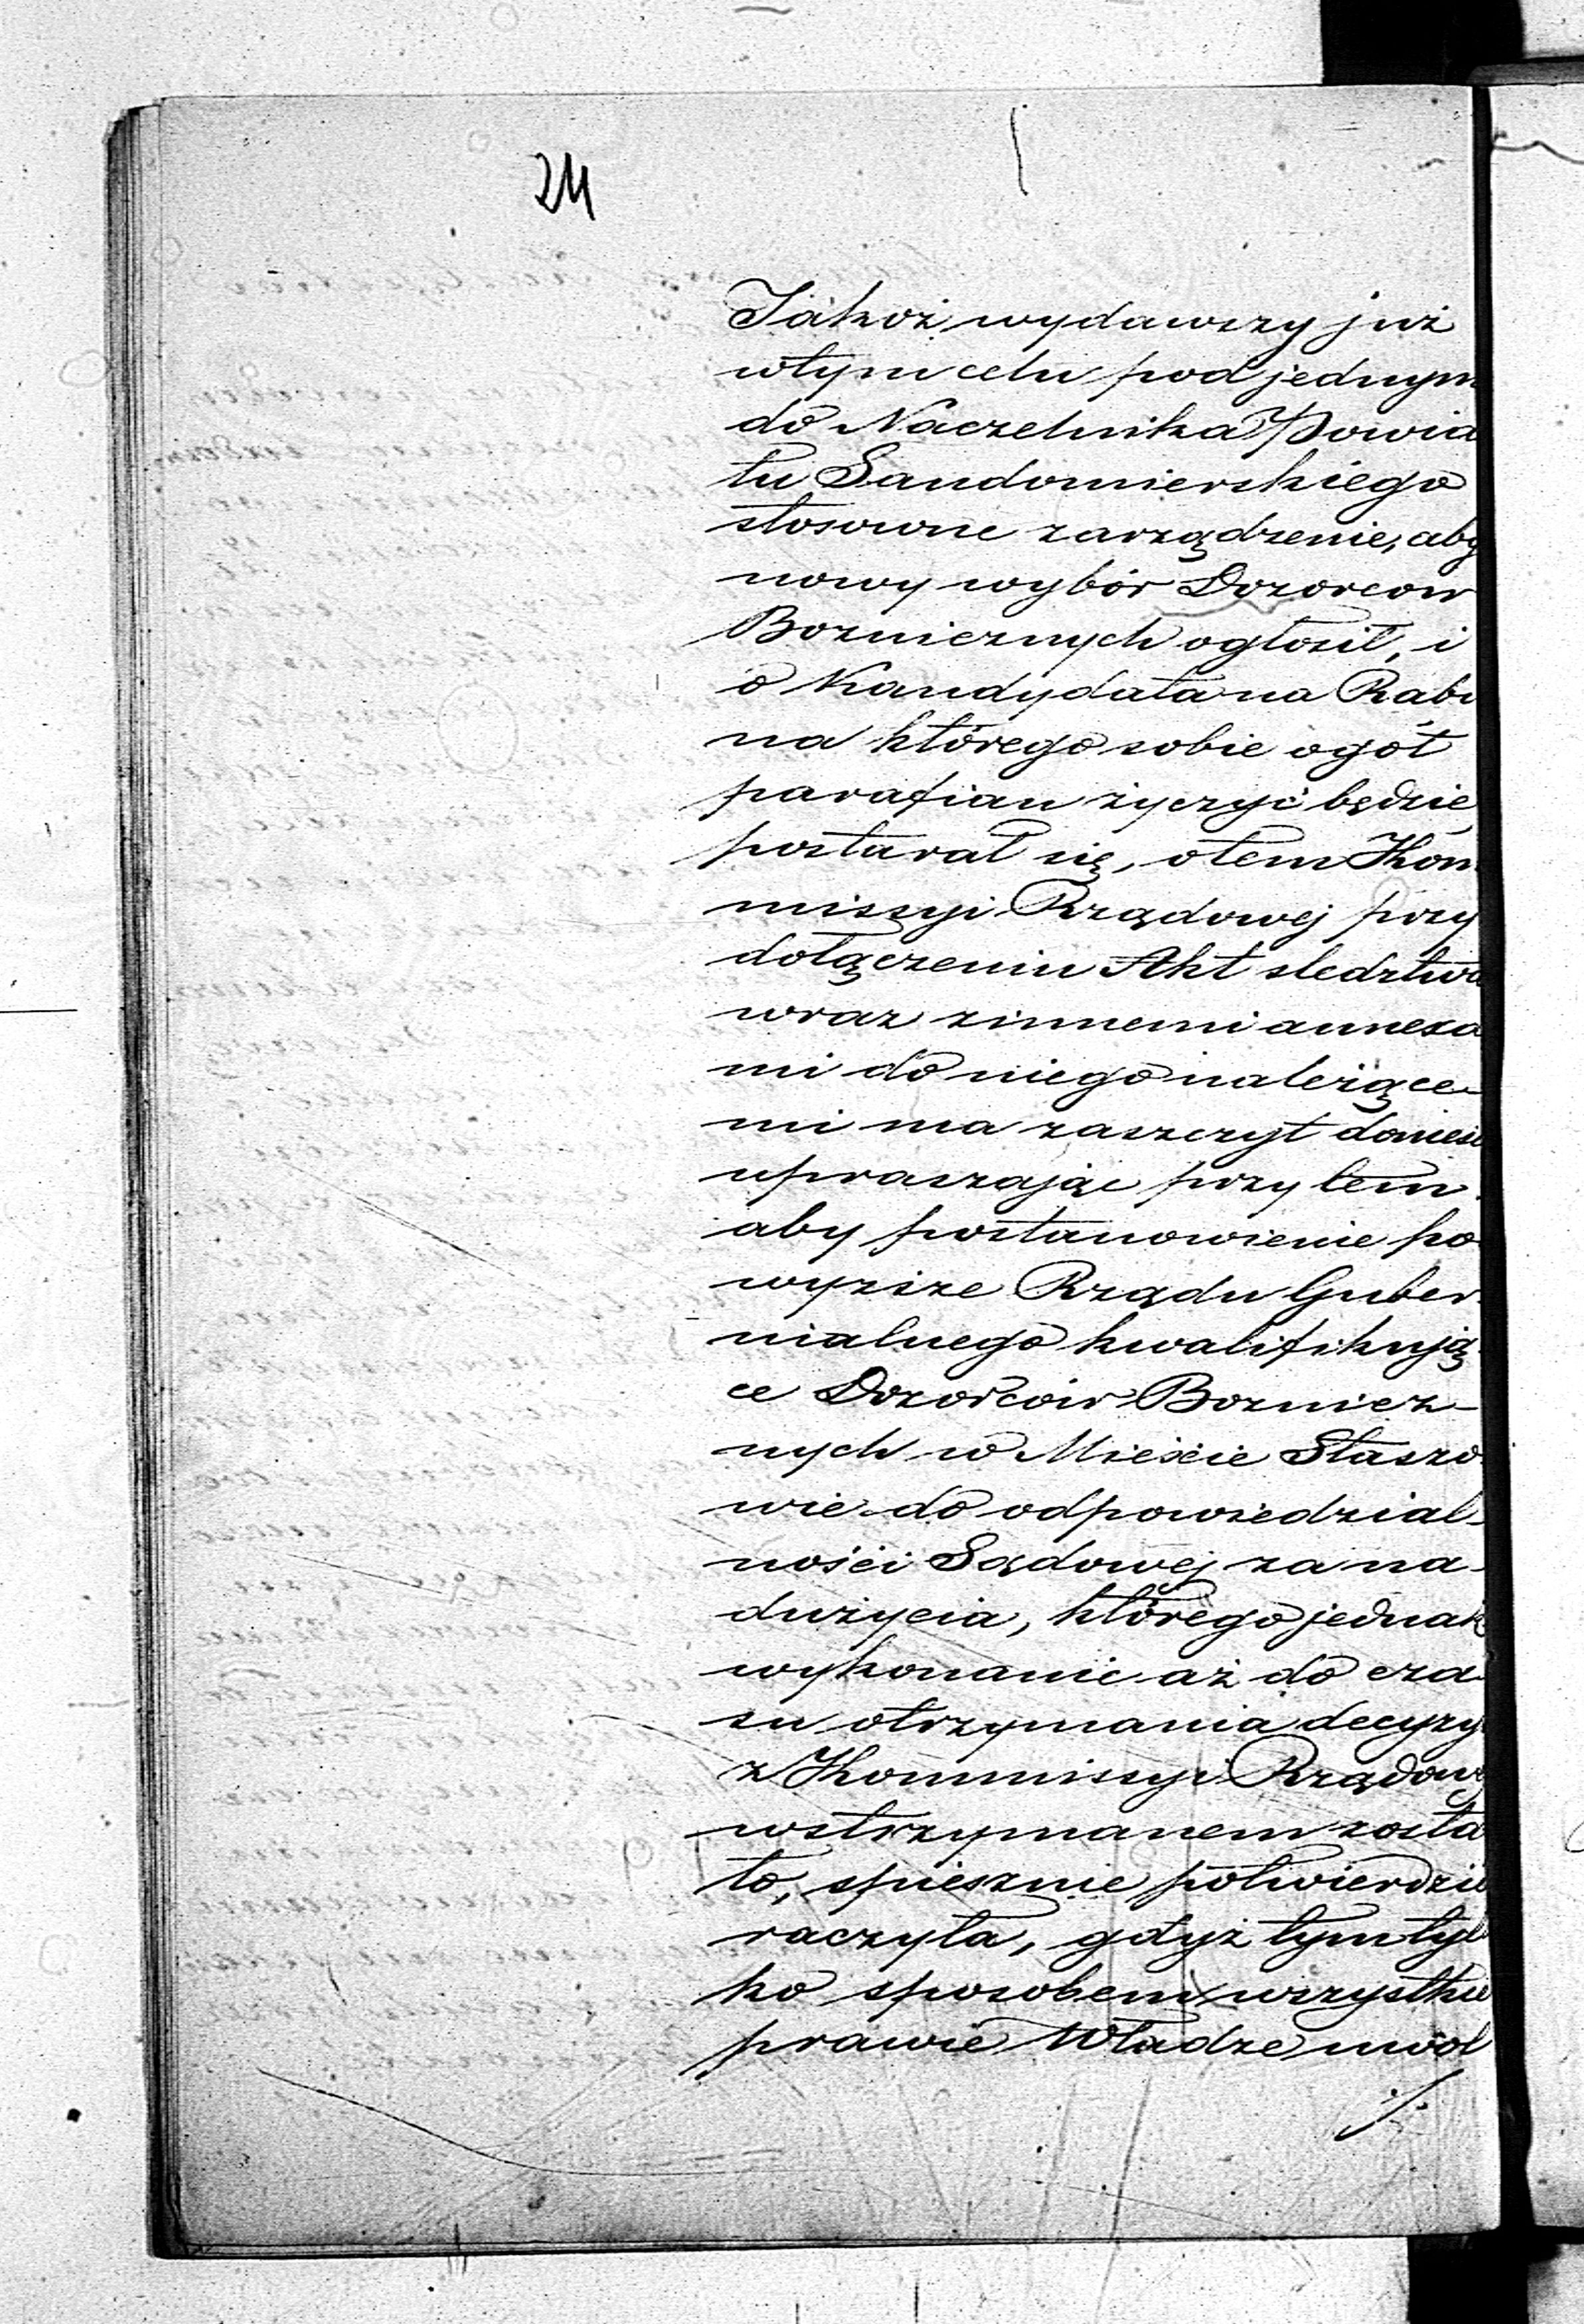 24
Jakoż wydawszy już
wtym celu pod jednym
do Naczelnika Powia
tu Sandomierskiego
stosowne zarządzenie, aby
nowy wybór Dozorcow
Boznicznych ogłosił, i
o Kandydata na Rabi
na którego sobie ogół
parafian życzyć będzie
postarał się, otem Kom
missyi Rządowej przy
dołączeniu Akt sledztwa
wraz zinnemi annexa
mi do niego należące
mi ma zaszczyt donieść
upraszając przy tem
aby postanowienie po
wyższe Rządu Guber
nialnego kwalifikują
ce Dozorców Boznicz-
nych w Mieście Staszo
wie do odpowiedzial
ności Sądowej za na
dużycia, którego jednak
wykonanie aż do cza
su otrzymania decyzyi
z Kommissyi Rządowej
wstrzymanem zosta
ło, spiesznie potwierdzić
raczyła, gdyż tym tyl
ko sposobem wszystkie
prawie Władze uwol
./.